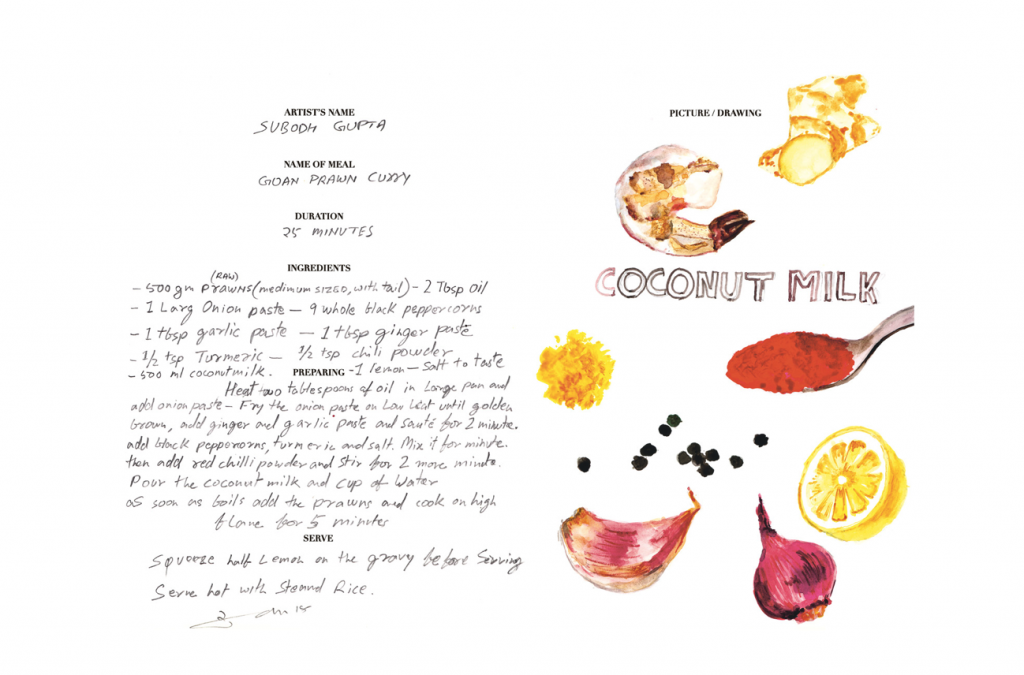 ARTIST'S NAME
SUBODH GUPTA
NAME OF MEAL
GOAN PRAWN CURRY
DURATION
25 MINUTES
INGREDIENTS
(RAW)
- 500gm PRAWNS (medimum SIZED, with tail) - 2 Tbsp Oil
- 1 Larg Onion paste - 9 whole black peppercorns
- 1 tbsp garlic paste - 1 tbsp ginger paste
- 1/2 tsp Turmeric - 1/2 tsp chili powder
- 500 ml coconutmilk. - 1 lemon - Salt to taste
PREPARING
Heat two tablespoons of oil in Large pan and
add onion paste - Fry the onion paste on Low heat until golden
brown, add ginger and garlic paste and sauté for 2 minute.
add black peppercorns, turmeric and salt. Mix it for minute.
then add red chilli powder and stir for 2 more minute.
Pour the coconut milk and cup of Water
as soon as boils add the prawns and cook on high
flame for 5 minutes
SERVE
Squeeze half Lemon on the gravy before Serving
Serve hot with Steamd Rice.
PICTURE / DRAWING
COCONUT MILK